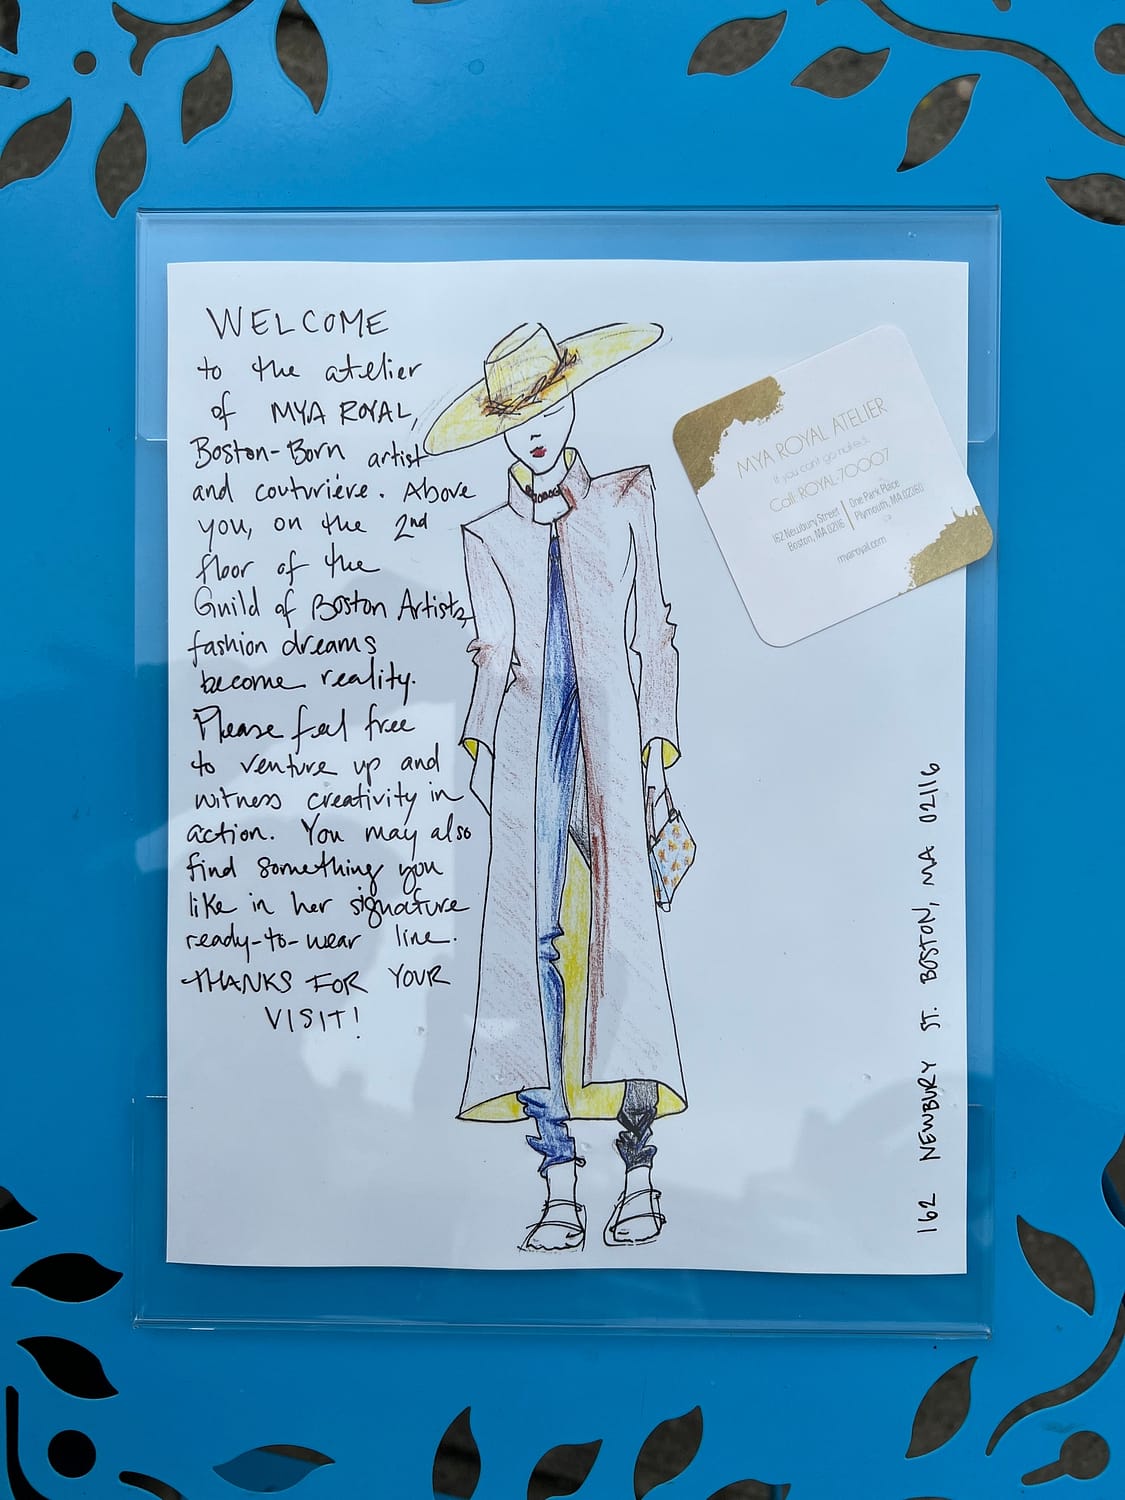 WELCOME
to the atelier
of MYA ROYAL,
Boston-Born artist
and couturière. Above
you, on the 2nd
floor of the
Guild of Boston Artists,
fashion dreams
become reality.
Please feel free
to venture up and
witness creativity in
action. You may also
find something you
like in her signature
ready-to-wear line.
THANKS FOR YOUR
VISIT!
MYA ROYAL ATELIER
If you can't go naked...
Call ROYAL-70007
162 Newbury Street | One Park Place
Boston, MA 02116 | Plymouth, MA 02360
myaroyal.com
162 NEWBURY ST. BOSTON, MA 02116